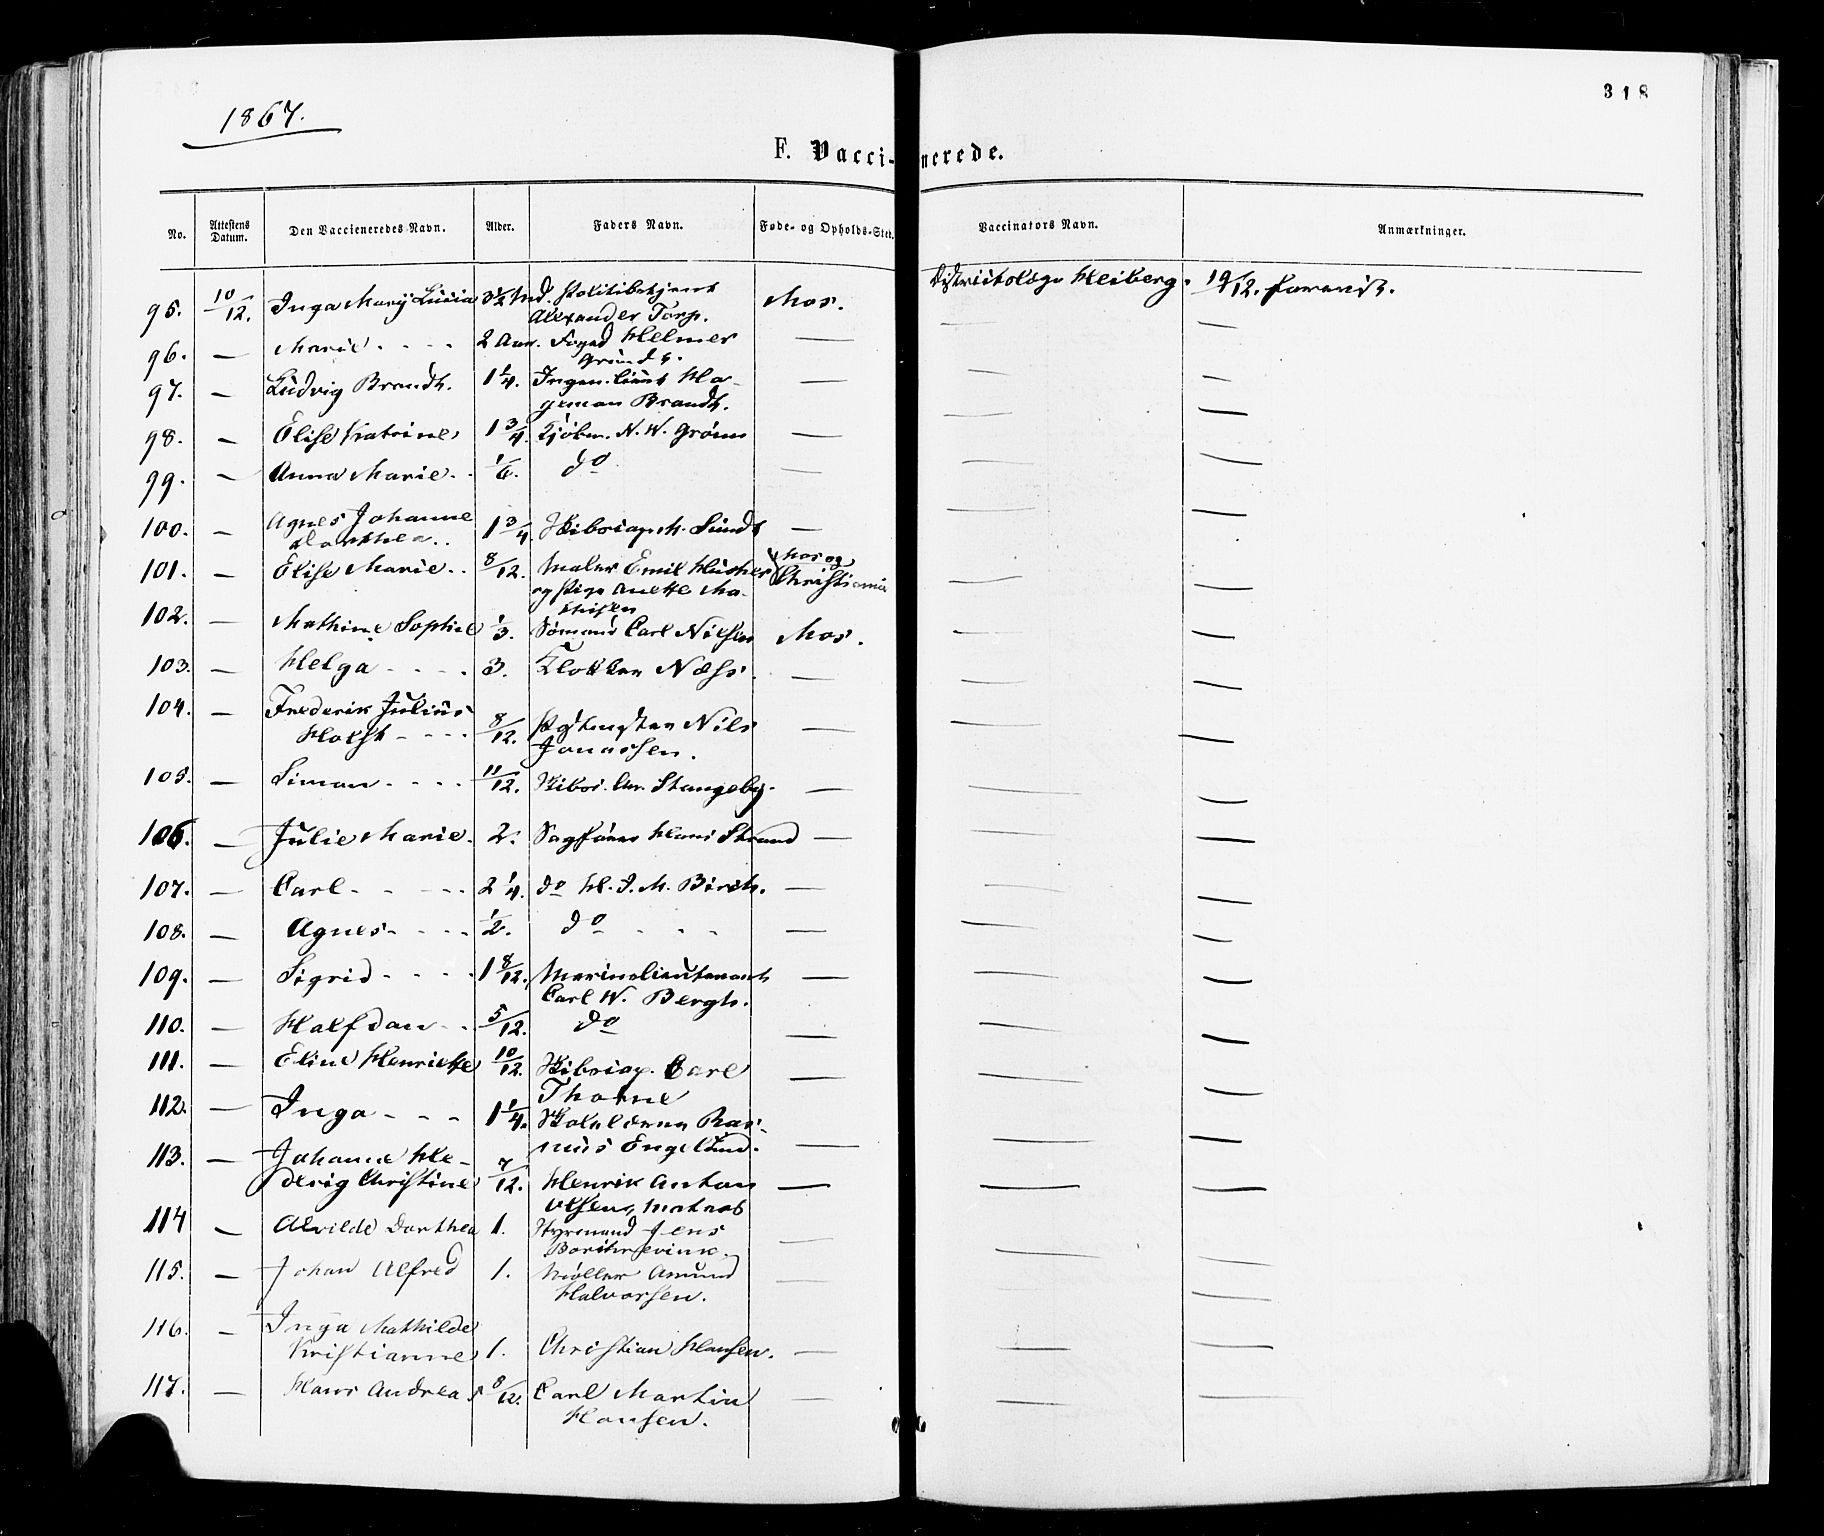 1867.
318
F. Vaccinerede.
No. Attestens Datum. Den Vaccineredes Navn. Alder. Faders Navn. Føde- og Opholds-Sted. Vaccinators Navn. Anmærkninger.
95. 10/12. Inga Marij Lucia 3 1/2 Md. Politibetjent Mos. Districtslæge Heiberg. 19/12.
Alexander Torp.
96. — Marie - - - 2 Aar. Foged Helmer — — —
Grundt.
97. — Ludvig Brandt. 1 1/4. Ingen. Lieut Ha- — — —
geman Brandt.
98. — Elise Katrine 1 3/4. Kjøbm. N. W. Grønn — — —
99. — Anna Marie - - 1/6. do — — —
100. — Agnes Johanne
Dorthea - - 1 3/4. Skibscap. M. Sundt — — —
101. — Elise Marie - - 8/12. Maler Emil Husher Mos og Christiania — —
og Pige Anette Ma-
thisen
102. — Mathine Sophie 1/3. Sømand Carl Nilsen Mos. — —
103. — Helga - - - - 3. Klokker Næss. — — —
104. — Frederik Julius
Holst - - - 8/12. Postmester Nils — — —
Jonassen.
105. — Simon - - - - 11/12. Skibsr. Chr. Stangeby. — — —
106. — Julie Marie. 2. Sagfører Hans Strand — — —
107. — Carl - - - - 2 1/4. do H. J. M. Birch. — — —
108. — Agnes - - - - 1/2. do - - - — — —
109. — Sigrid - - - - 1 8/12. Marinelieutenant — — —
Carl W. Bergh.
110. — Halfdan - - 5/12. do — — —
111. — Eline Henriette 10/12. Skibscap. Carl — — —
Thorne
112. — Inga - - - 1 1/4. Skolelærer Ras- — — —
mus Engelund.
113. — Johanne He-
devig Christine 7/12. Henrik Anton — — —
Olsen, Matros
114 — Alvilde Dorthea 1. Styrmand Jens — — —
115. — Johan Alfred 1. Møller Amund — — —
Halvorsen.
116. — Inga Mathilde
Kristianne 1. Christian Hansen. — — —
117. — Hans Andreas 8/12. Carl Martin — — —
Hansen.